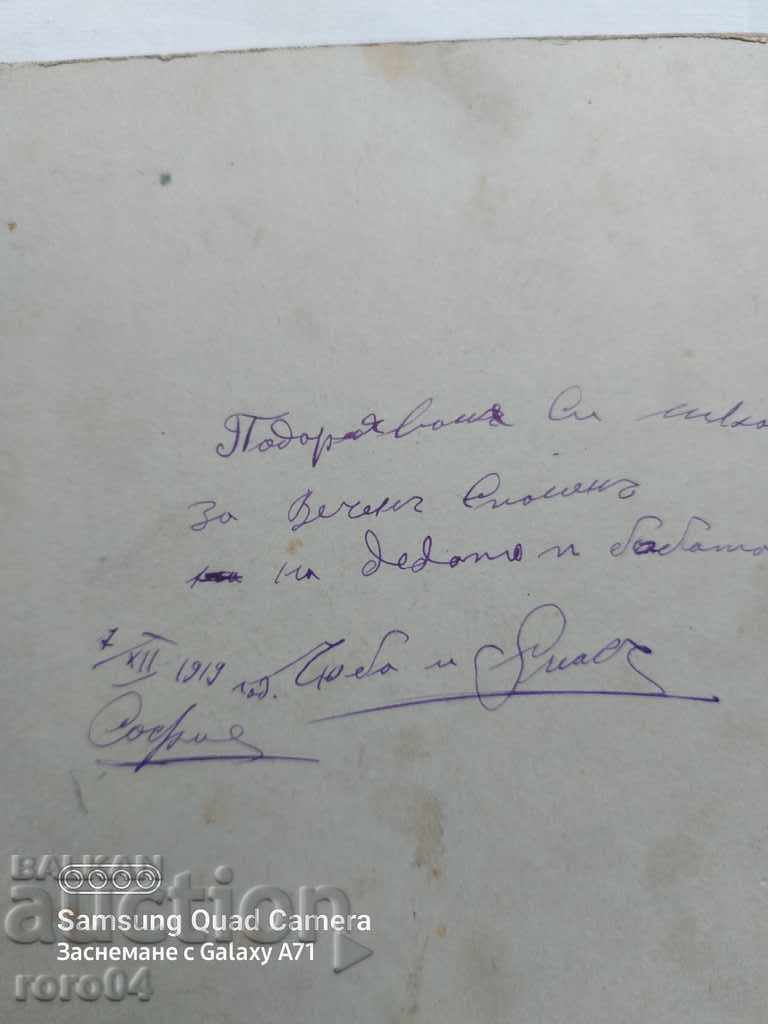 Подарявамъ си
за Веченъ Споменъ
на дедото и бабата
7/XII 1919 год. Люба и
София
BALKAN
auction
roro04
Samsung Quad Camera
Заснемане с Galaxy A71